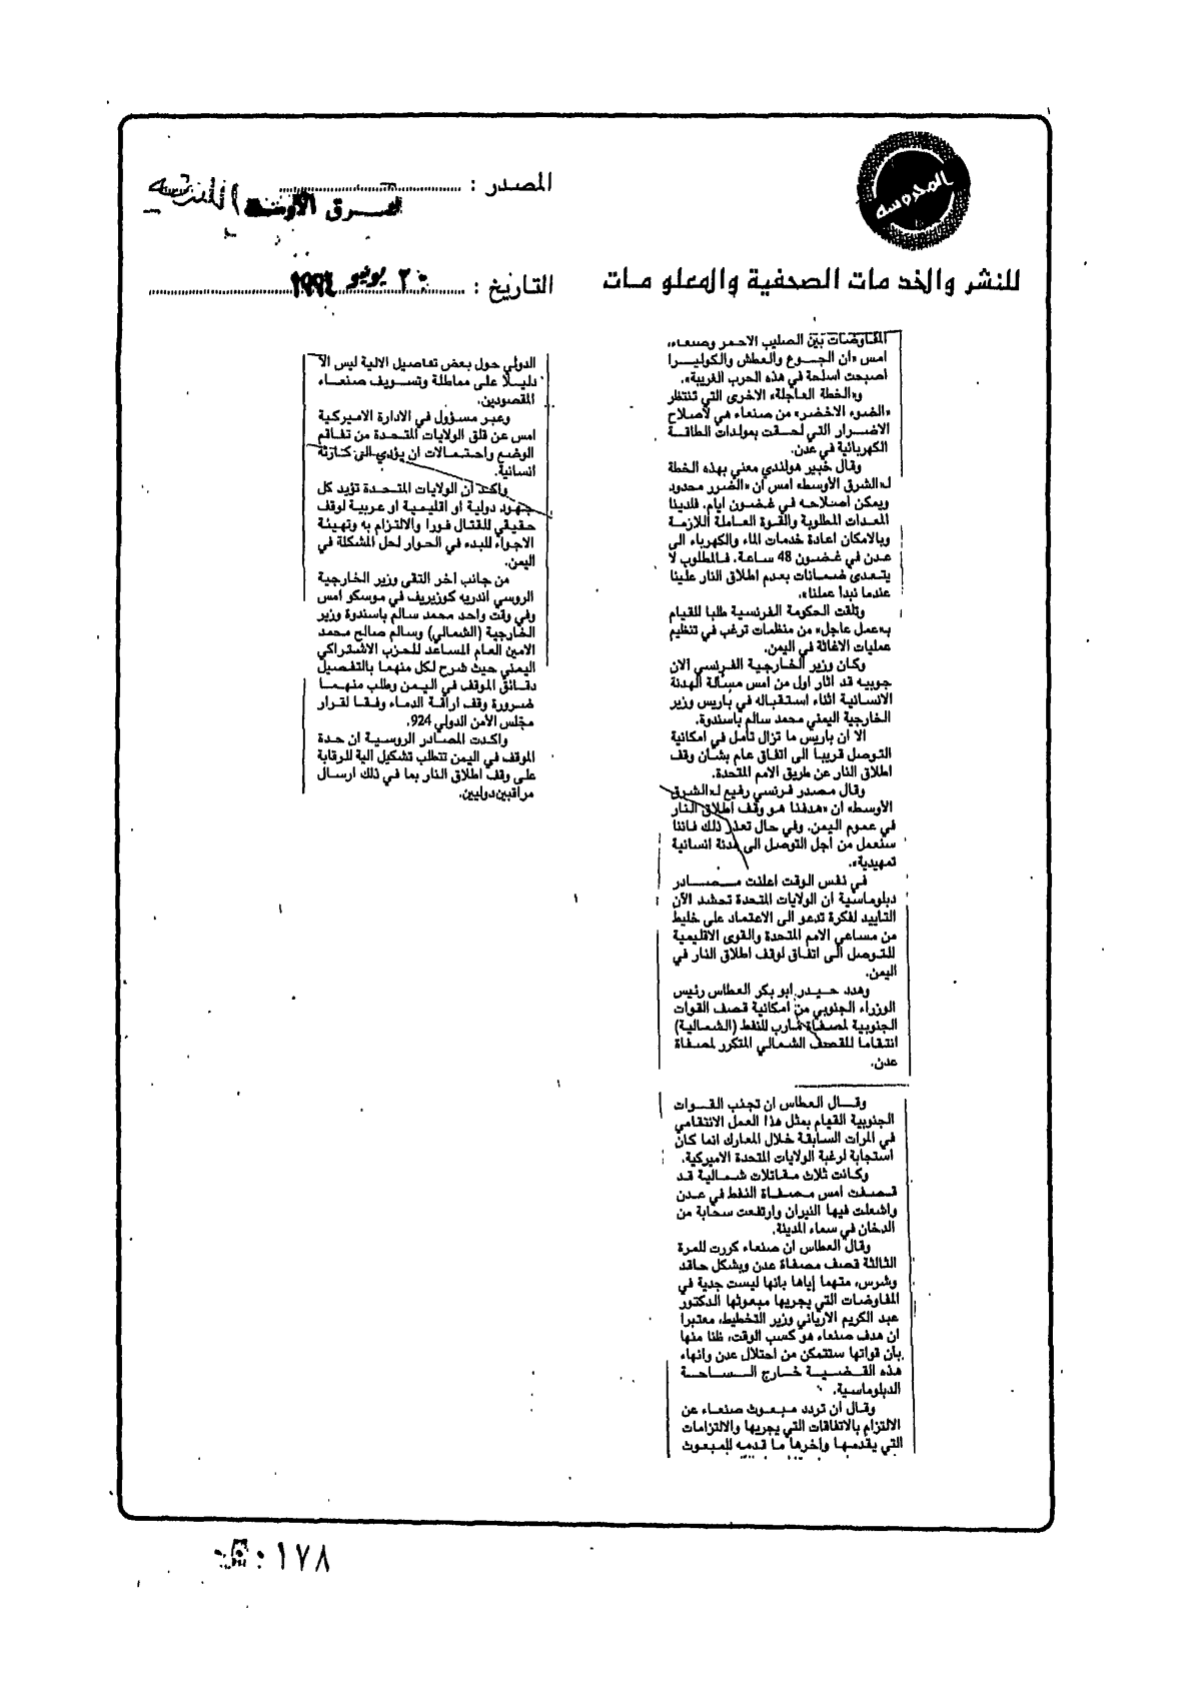 المحروسه
المصدر :
الشرق الأوسط اللندنية
للنشر والخدمات الصحفية والمعلومات
التاريخ : ٢٠ يونيو ١٩٩٤
المفاوضات بين الصليب الاحمر وصنعاء،
امس «ان الجوع والعطش والكوليرا
اصبحت اسلحة في هذه الحرب الغريبة».
و«الخطة العاجلة» الاخرى التي تنتظر
«الضوء الاخضر» من صنعاء هي لاصلاح
الاضرار التي لحقت بمولدات الطاقة
الكهربائية في عدن.
وقال خبير هولندي معني بهذه الخطة
لـ«الشرق الأوسط» امس ان «الضرر محدود
ويمكن اصلاحه في غضون ايام. فلدينا
المعدات المطلوبة والقوة العاملة اللازمة
وبالامكان اعادة خدمات الماء والكهرباء الى
عدن في غضون 48 ساعة. فالمطلوب لا
يتعدى ضمانات بعدم اطلاق النار علينا
عندما نبدأ عملنا».
وتلقت الحكومة الفرنسية طلبا للقيام
بـ«عمل عاجل» من منظمات ترغب في تنظيم
عمليات الاغاثة في اليمن.
وكان وزير الخارجية الفرنسي الان
جوبيه قد اثار اول من امس مسألة الهدنة
الانسانية اثناء استقباله في باريس وزير
الخارجية اليمني محمد سالم باسندوة.
الا ان باريس ما تزال تأمل في امكانية
التوصل قريبا الى اتفاق عام بشأن وقف
اطلاق النار عن طريق الامم المتحدة.
وقال مصدر فرنسي رفيع لـ«الشرق
الأوسط» ان «هدفنا هو وقف اطلاق النار
في عموم اليمن. وفي حال تعذر ذلك فاننا
سنعمل من اجل التوصل الى هدنة انسانية
تمهيدية».
في نفس الوقت اعلنت مصادر
دبلوماسية ان الولايات المتحدة تحشد الآن
التاييد لفكرة تدعو الى الاعتماد على خليط
من مساعي الامم المتحدة والقوى الاقليمية
للتوصل الى اتفاق لوقف اطلاق النار في
اليمن.
وهدد حيدر ابو بكر العطاس رئيس
الوزراء الجنوبي من امكانية قصف القوات
الجنوبية لمصفاة مارب للنفط (الشمالية)
انتقاما للقصف الشمالي المتكرر لمصفاة
عدن.
وقال العطاس ان تجنب القوات
الجنوبية القيام بمثل هذا العمل الانتقامي
في المرات السابقة خلال المعارك انما كان
استجابة لرغبة الولايات المتحدة الاميركية.
وكانت ثلاث مقاتلات شمالية قد
قصفت امس مصفاة النفط في عدن
واشعلت فيها النيران وارتفعت سحابة من
الدخان في سماء المدينة.
وقال العطاس ان صنعاء كررت للمرة
الثالثة قصف مصفاة عدن وبشكل حاقد
وشرس، متهما إياها بانها ليست جدية في
المفاوضات التي يجريها مبعوثها الدكتور
عبد الكريم الارياني وزير التخطيط، معتبرا
ان هدف صنعاء هو كسب الوقت، ظنا منها
بأن قواتها ستتمكن من احتلال عدن وانهاء
هذه القضية خارج الساحة
الدبلوماسية.
وقال ان تردد مبعوث صنعاء عن
الالتزام بالاتفاقات التي يجريها والالتزامات
التي يقدمها وآخرها ما قدمه للمبعوث
الدولي حول بعض تفاصيل الالية ليس الا
دليلا على مماطلة وتسويف صنعاء
المقصودين.
وعبر مسؤول في الادارة الاميركية
امس عن قلق الولايات المتحدة من تفاقم
الوضع واحتمالات ان يؤدي الى كارثة
انسانية.
واكد ان الولايات المتحدة تؤيد كل
جهود دولية او اقليمية او عربية لوقف
حقيقي للقتال فورا والالتزام به وتهيئة
الاجواء للبدء في الحوار لحل المشكلة في
اليمن.
من جانب اخر التقى وزير الخارجية
الروسي اندريه كوزيريف في موسكو امس
وفي وقت واحد محمد سالم باسندوة وزير
الخارجية (الشمالي) وسالم صالح محمد
الامين العام المساعد للحزب الاشتراكي
اليمني حيث شرح لكل منهما بالتفصيل
دقائق الموقف في اليمن وطلب منهما
ضرورة وقف اراقة الدماء وفقا لقرار
مجلس الأمن الدولي 924.
واكدت المصادر الروسية ان حدة
الموقف في اليمن تتطلب تشكيل الية للرقابة
على وقف اطلاق النار بما في ذلك ارسال
مراقبين دوليين.
١٧٨